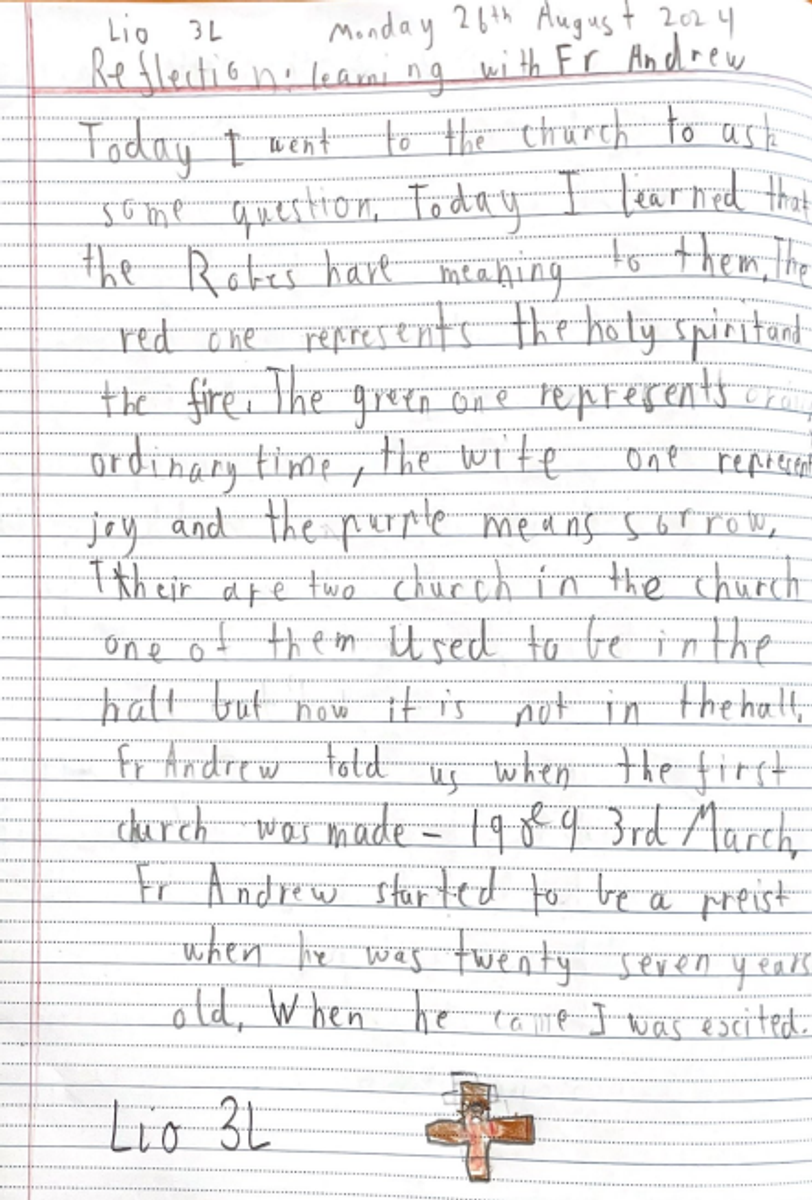 Lio 3L Monday 26th August 2024
Reflection: learning with Fr Andrew
Today I went to the church to ask
some question. Today I learned that
the Robes have meaning to them. The
red one represents the holy spirit and
the fire. The green one represents
ordinary time, the wite one represent
joy and the purple means sorrow.
Their are two church in the church
one of them Used to be in the
hall but now it is not in the hall.
Fr Andrew told us when the first
church was made - 1989 3rd March.
Fr Andrew started to be a preist
when he was twenty seven years
old. When he came I was excited.
Lio 3L